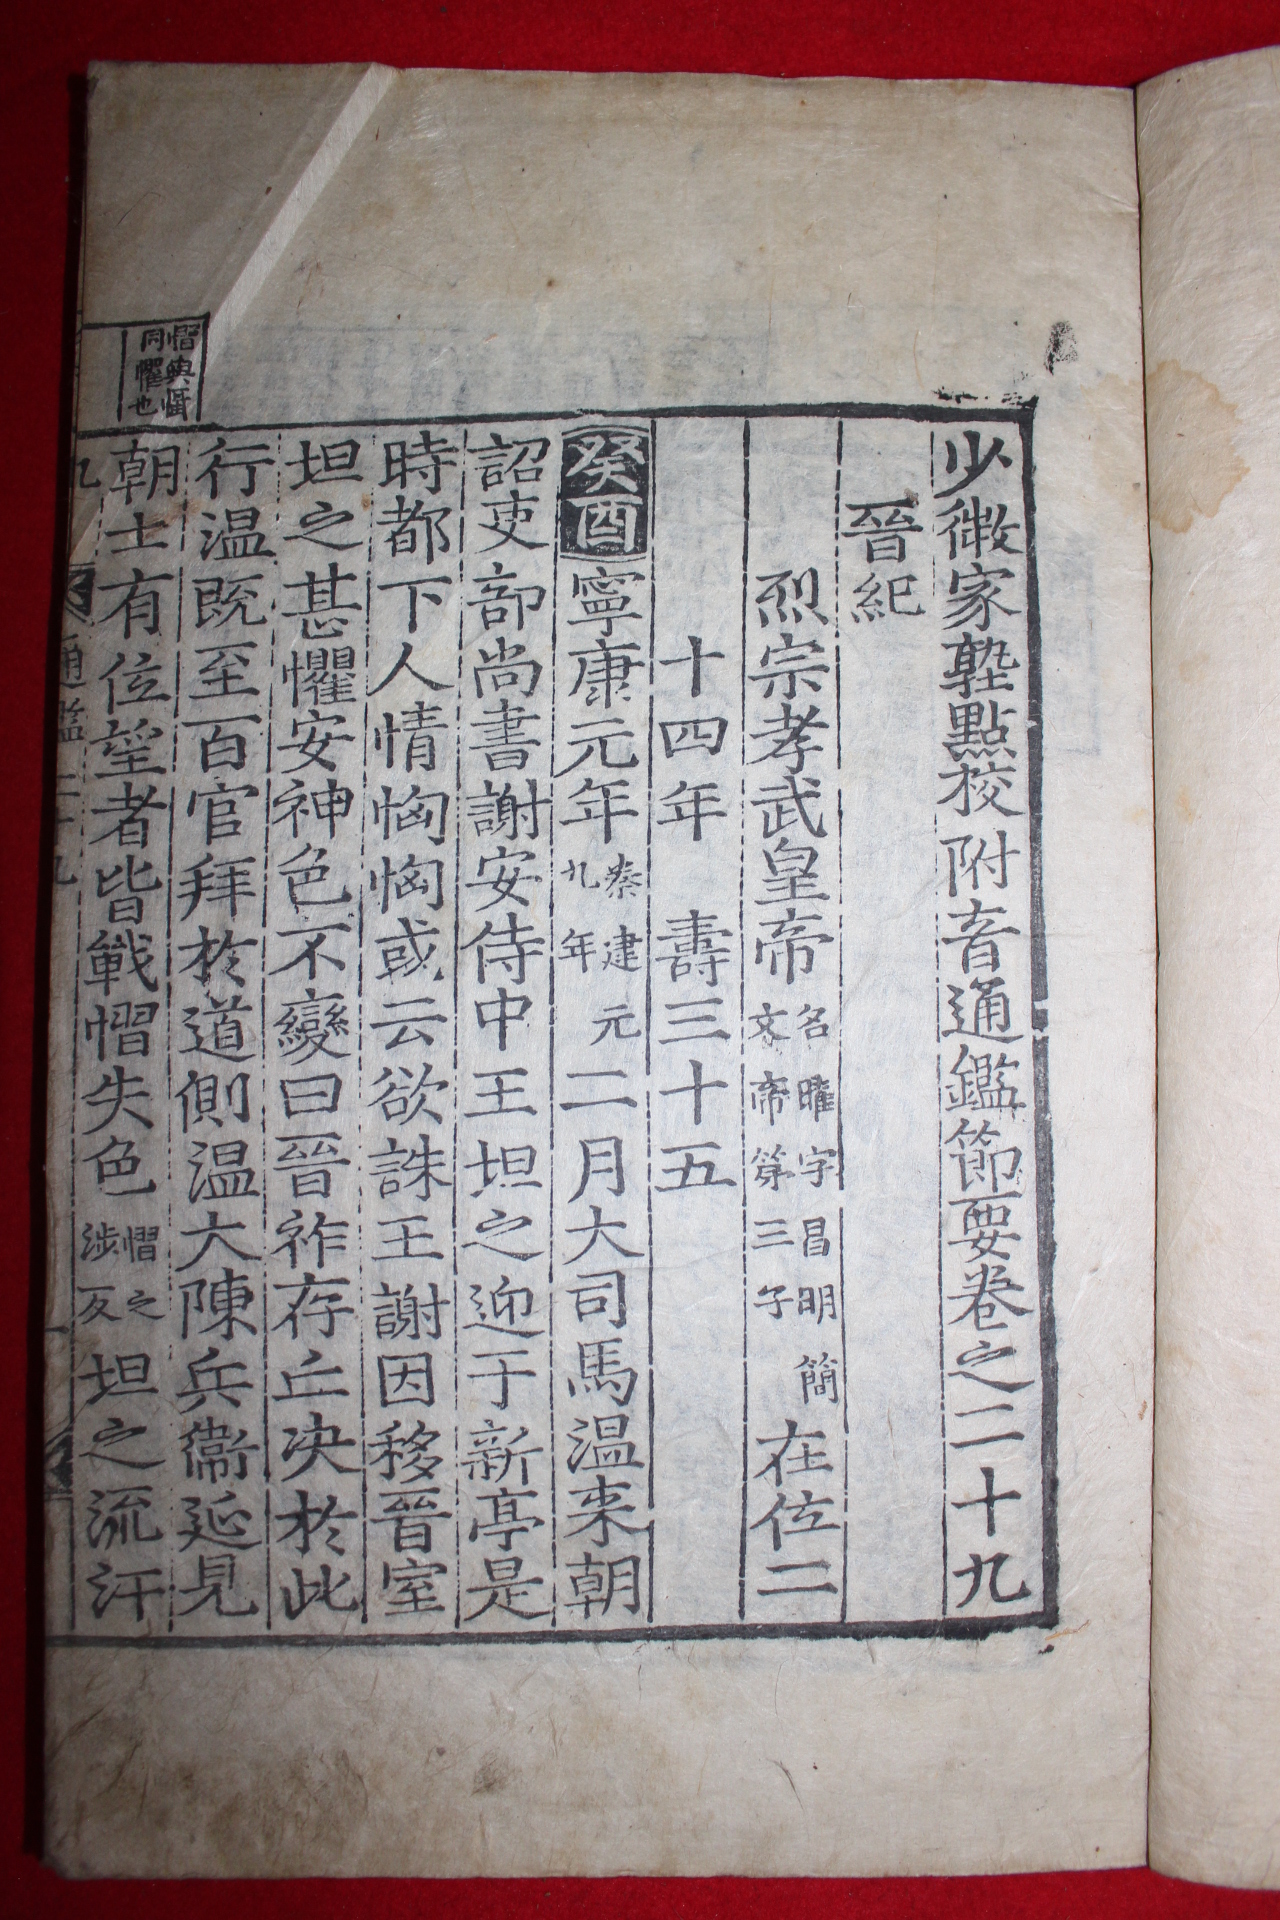 少微家塾點校附音通鑑節要卷之二十九
晉紀
烈宗孝武皇帝名曜字昌明簡文帝第三子在位二
十四年 壽三十五
癸酉寧康元年秦建元九年二月大司馬温来朝
詔吏部尚書謝安侍中王坦之迎于新亭是
時都下人情恟恟或云欲誅王謝因移晉室
坦之甚懼安神色不變曰晉祚存亡决於此
行温既至百官拜於道側温大陳兵衛延見
慴與懾同懼也
朝士有位望者皆戰慴失色慴之涉反坦之流汗
通鑑二十九